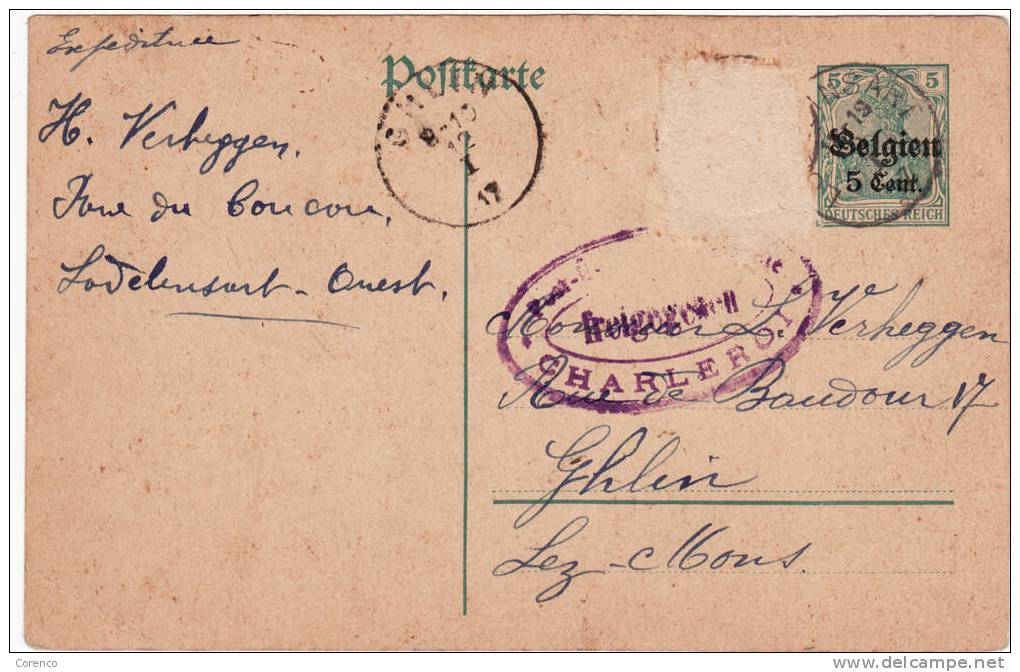 Expéditrice
H. Verheggen,
Rue du Coucou,
Lodelinsart-Ouest.
Postkarte
GHLIN
8-10
12
I
17
5 5
Belgien
5 Cent.
DEUTSCHES REICH
12
Freigegeben
CHARLEROI
Monsieur L. Verheggen
Rue de Baudour 17
Ghlin
Lez-Mons.
Corenco
www.delcampe.net